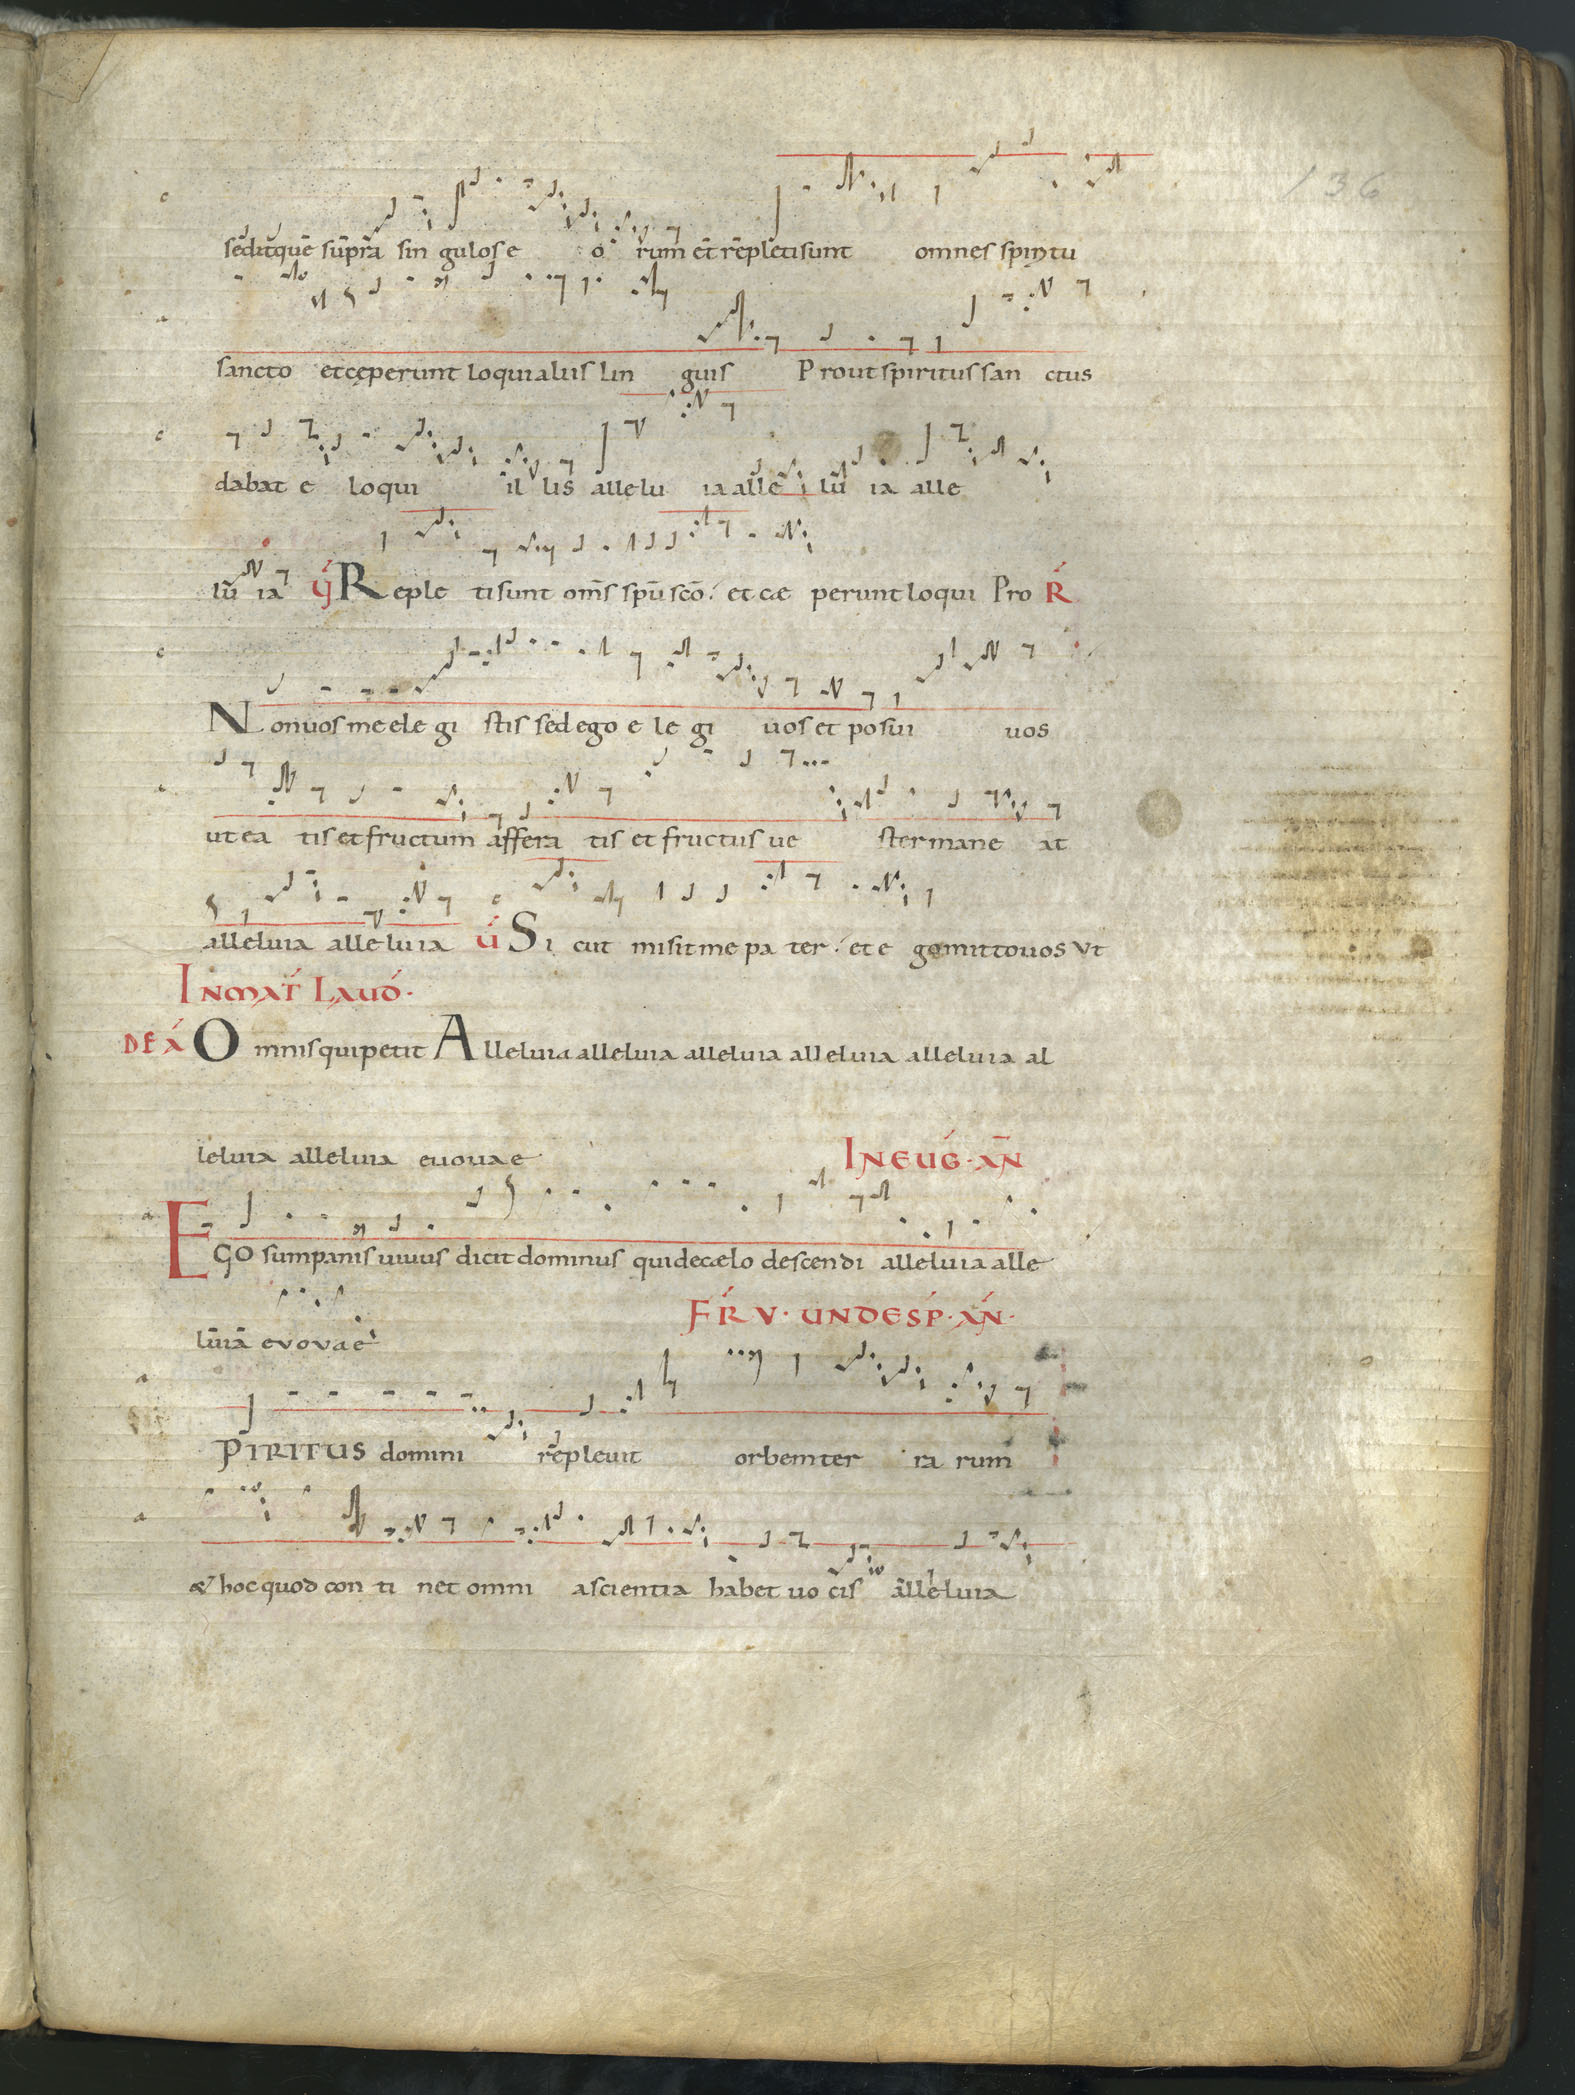 136
seditque supra sin gulos e o rum et repleti sunt omnes spiritu
sancto et ceperunt loqui aliis lin guis Prout spiritus san ctus
dabat e loqui il lis allelu ia alle lu ia alle
lu ia V Reple ti sunt om̄s sp̄u sc̄o et cae perunt loqui Pro R
Non vos me ele gi stis sed ego e le gi vos et posui vos
ut ea tis et fructum affera tis et fructus ve ster mane at
alleluia alleluia V Si cut misit me pa ter et e go mitto vos Ut
IN MAT LAUD.
DE A Omnis qui petit Alleluia alleluia alleluia alleluia alleluia al
leluia alleluia evovae IN EUG. AN
EGO sum panis vivus dicit dominus qui de caelo descendi alleluia alle
luia evovae FR V. UNDE SP. AN.
PIRITUS domini replevit orbem ter ra rum
& hoc quod con ti net omni a scientia habet vo cis alleluia